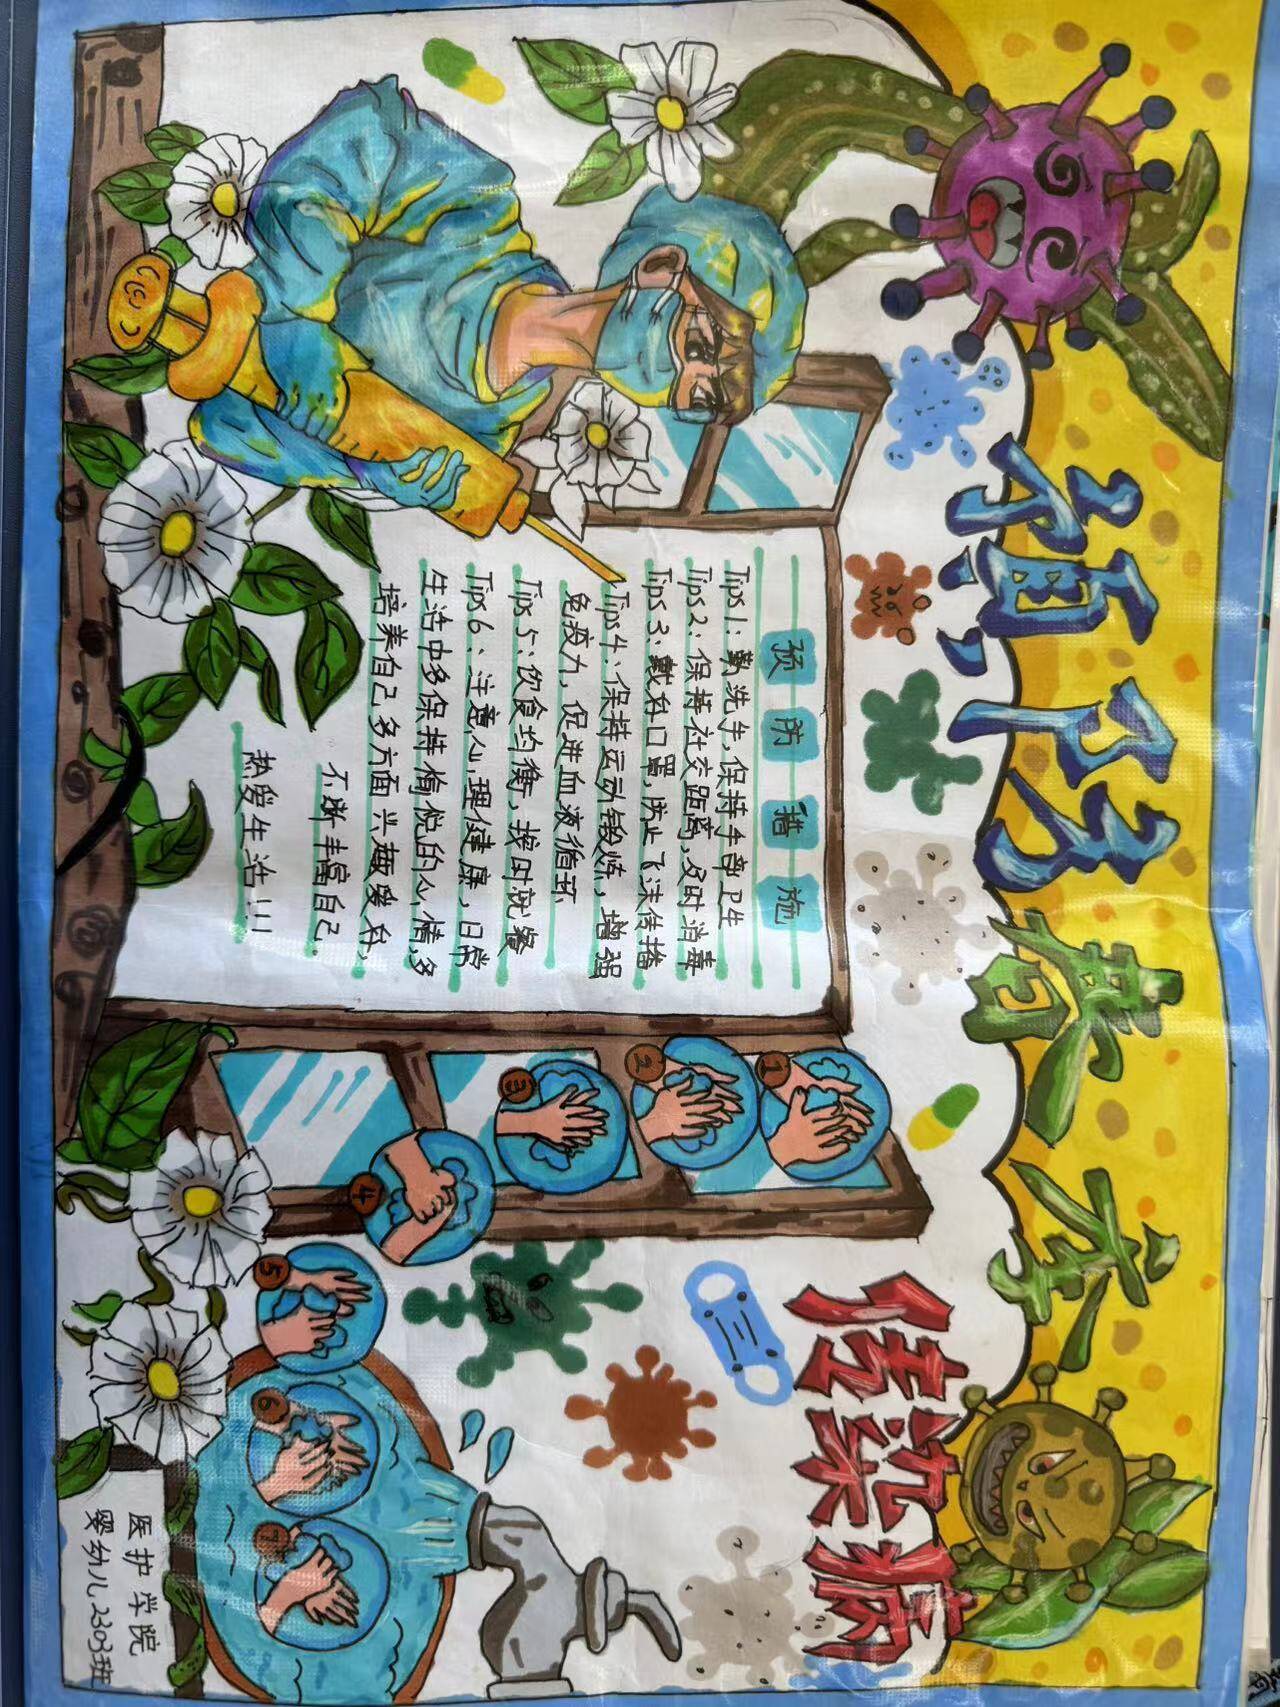 预防春季
传染病
预防措施
Tips1:勤洗手,保持手部卫生
Tips2:保持社交距离,及时消毒
Tips3:戴好口罩,防止飞沫传播
Tips4:保持运动锻炼,增强
免疫力,促进血液循环
Tips5:饮食均衡,按时就餐
Tips6:注意心理健康,日常
生活中多保持愉悦的心情,多
培养自己多方面兴趣爱好,
不断丰富自己.
热爱生活!!!
1
2
3
4
5
6
7
医护学院
婴幼儿2303班